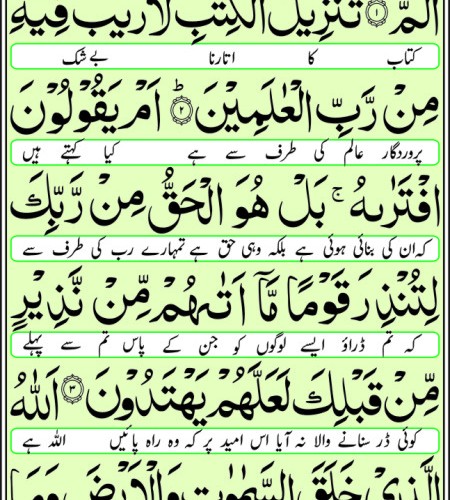 الٓمّٓ ۝۱ تَنْزِیْلُ الْكِتٰبِ لَا رَیْبَ فِیْهِ
کتاب کا اتارنا بے شک
مِنْ رَّبِّ الْعٰلَمِیْنَؕ۝۲ اَمْ یَقُوْلُوْنَ
پروردگار عالم کی طرف سے ہے کیا کہتے ہیں
افْتَرٰىهُۚ بَلْ هُوَ الْحَقُّ مِنْ رَّبِّكَ
کہ ان کی بنائی ہوئی ہے بلکہ وہی حق ہے تمہارے رب کی طرف سے
لِتُنْذِرَ قَوْمًا مَّاۤ اَتٰىهُمْ مِّنْ نَّذِیْرٍ
کہ تم ڈراؤ ایسے لوگوں کو جن کے پاس تم سے پہلے
مِّنْ قَبْلِكَ لَعَلَّهُمْ یَهْتَدُوْنَ۝۳ اَللّٰهُ
کوئی ڈر سنانے والا نہ آیا اس امید پر کہ وہ راہ پائیں اللہ ہے
الَّذِیْ خَلَقَ السَّمٰوٰتِ وَالْاَرْضَ وَمَا